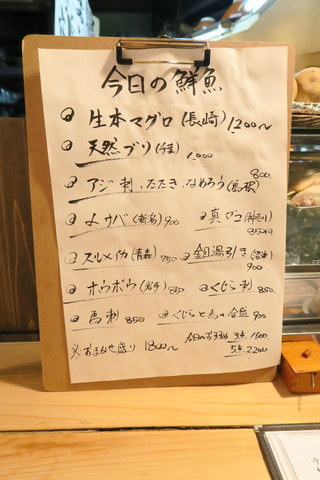 今日の鮮魚
生本マグロ(長崎)1200〜
天然ブリ(千葉)1,000
アジ刺、たたき、なめろう(島根)800.
メサバ(青森)900 真ダコ(神奈川)
スルメイカ(青森)750 金目湯引き(沼津)900
ホウボウ(岩手)850 くじら刺850.
馬刺850 くじらと馬の合盛900
今日のお刺身 3点1500
※おまかせ盛り1800〜 5点2200